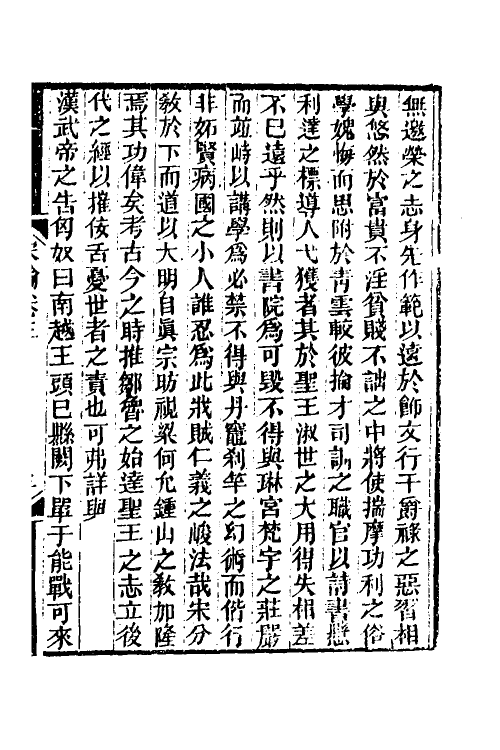 無邀榮之志身先作範以遠於飾文行干爵祿之惡習相
與悠然於富貴不淫貧賤不詘之中將使揣摩功利之俗
學媿悔而思附於青雲較彼掄才司訓之職官以詩書懸
利達之標導人弋獲者其於聖王淑世之大用得失相差
不已遠乎然則以書院爲可毀不得與琳宮梵宇之莊嚴
而竝峙以講學爲必禁不得與丹竈刹竿之幻術而偕行
非妬賢病國之小人誰忍爲此戕賊仁義之峻法哉宋分
敎於下而道以大明自眞宗昉視梁何允鍾山之敎加隆
焉其功偉矣考古今之時推鄒魯之始達聖王之志立後
代之經以摧佞舌憂世者之責也可弗詳與
漢武帝之告匈奴曰南越王頭已縣闕下單于能戰可來
宋論卷三